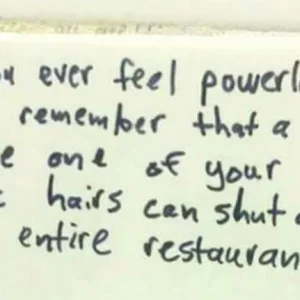 u ever feel powerl
remember that a
e one of your
c hairs can shut d
entire restauran